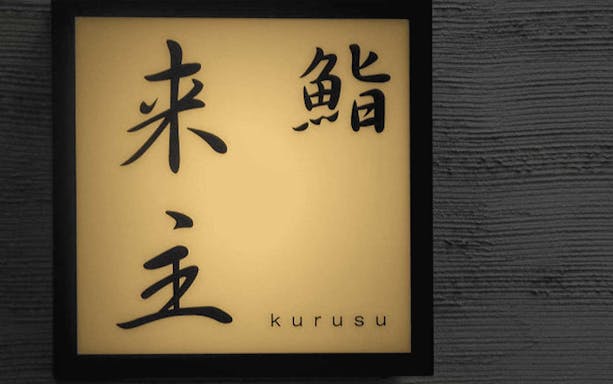 鮨
来主
kurusu